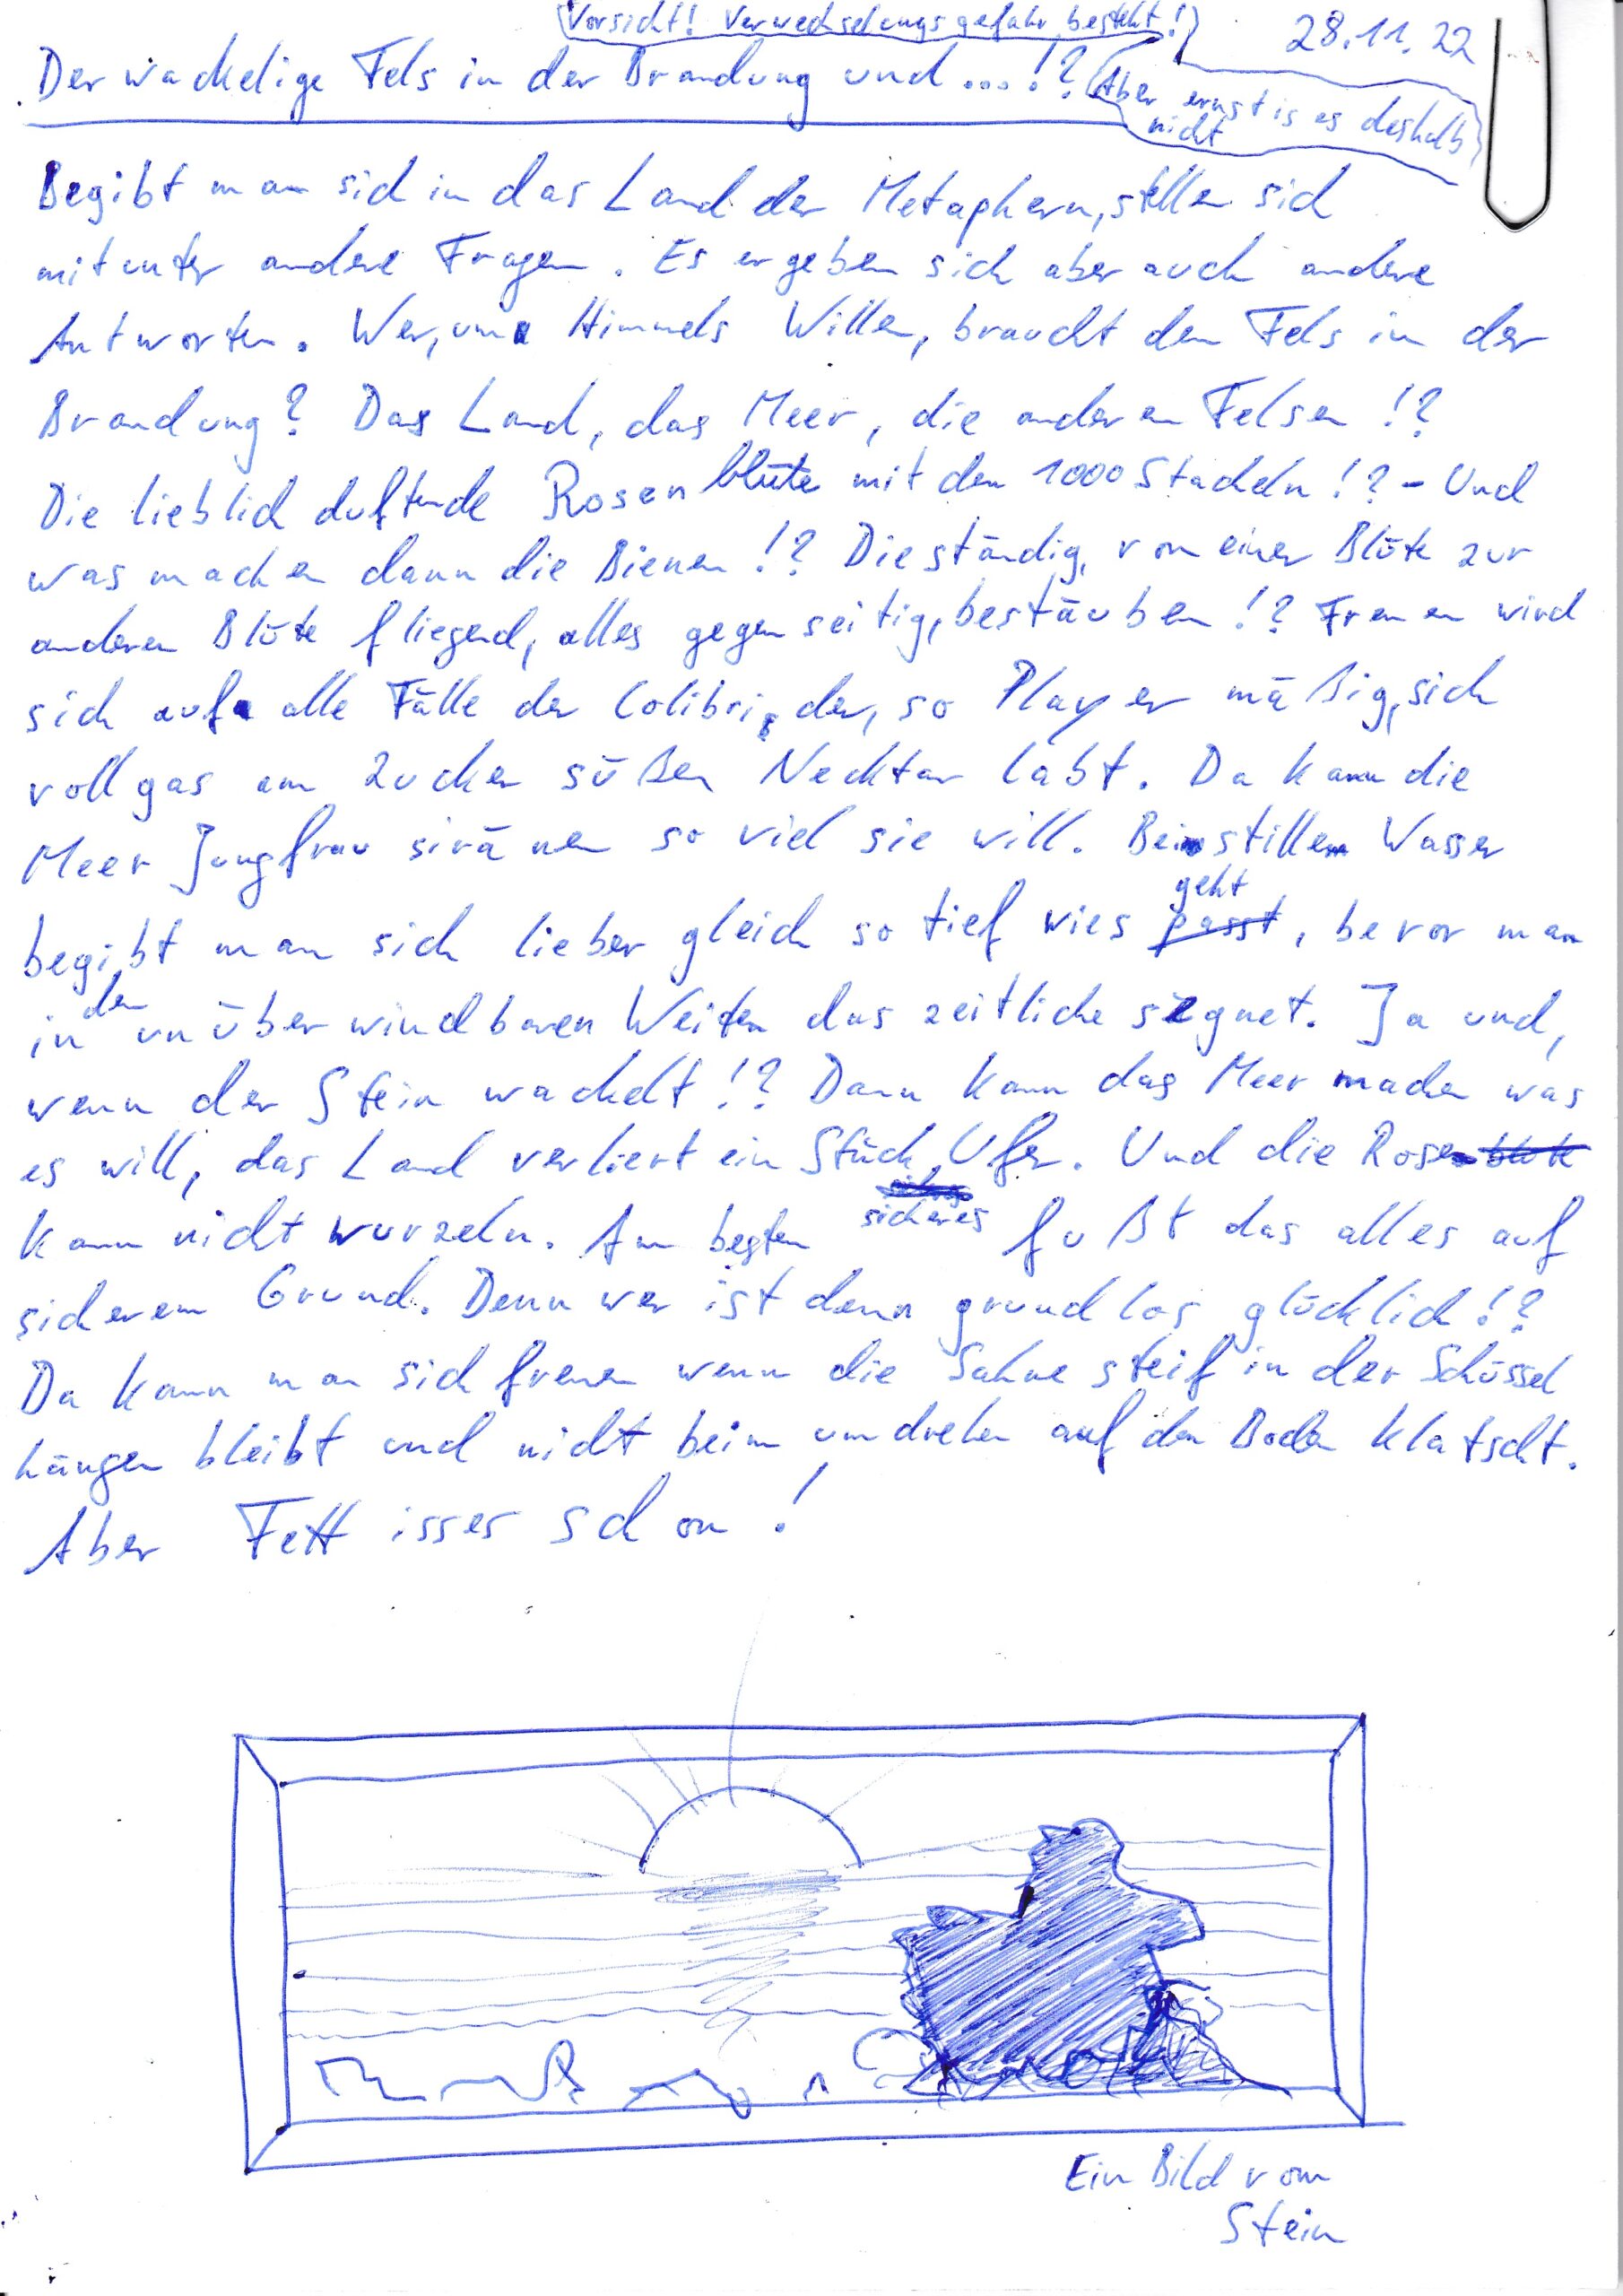 Vorsicht! Verwechselungsgefahr besteht!
28.11.22
Der wackelige Fels in der Brandung und...!?
Aber ernst is es deshalb
nicht
Begibt man sich in das Land der Metaphern, stellen sich
mitunter andere Fragen. Es ergeben sich aber auch andere
Antworten. Wer, um Himmels Willen, braucht den Fels in der
Brandung? Das Land, das Meer, die anderen Felsen!?
Die lieblich duftende Rosenblüte mit den 1000 Stacheln!? - Und
was machen dann die Bienen!? Die ständig, von einer Blüte zur
anderen Blüte fliegend, alles gegenseitig, bestäuben!? Freuen wird
sich auf alle Fälle der Colibri, der, so Player mäßig, sich
vollgas am Zucker süßen Necktar labt. Da kann die
Meer Jungfrau siränen so viel sie will. Bei stillem Wasser
begibt man sich lieber gleich so tief wies passt geht, bevor man
in den unüberwindbaren Weiten das zeitliche segnet. Ja und,
wenn der Stein wackelt!? Dann kann das Meer machen was
es will, das Land verliert ein Stück sicheres Ufer. Und die Rose
kann nicht wurzeln. Am besten fußt das alles auf
sicherem Grund. Denn wer ist denn grundlos glücklich!?
Da kann man sich freuen wenn die Sahne steif in der Schüssel
hängen bleibt und nicht beim umdrehen auf den Boden klatscht.
Aber Fett isser schon!
Ein Bild vom
Stein